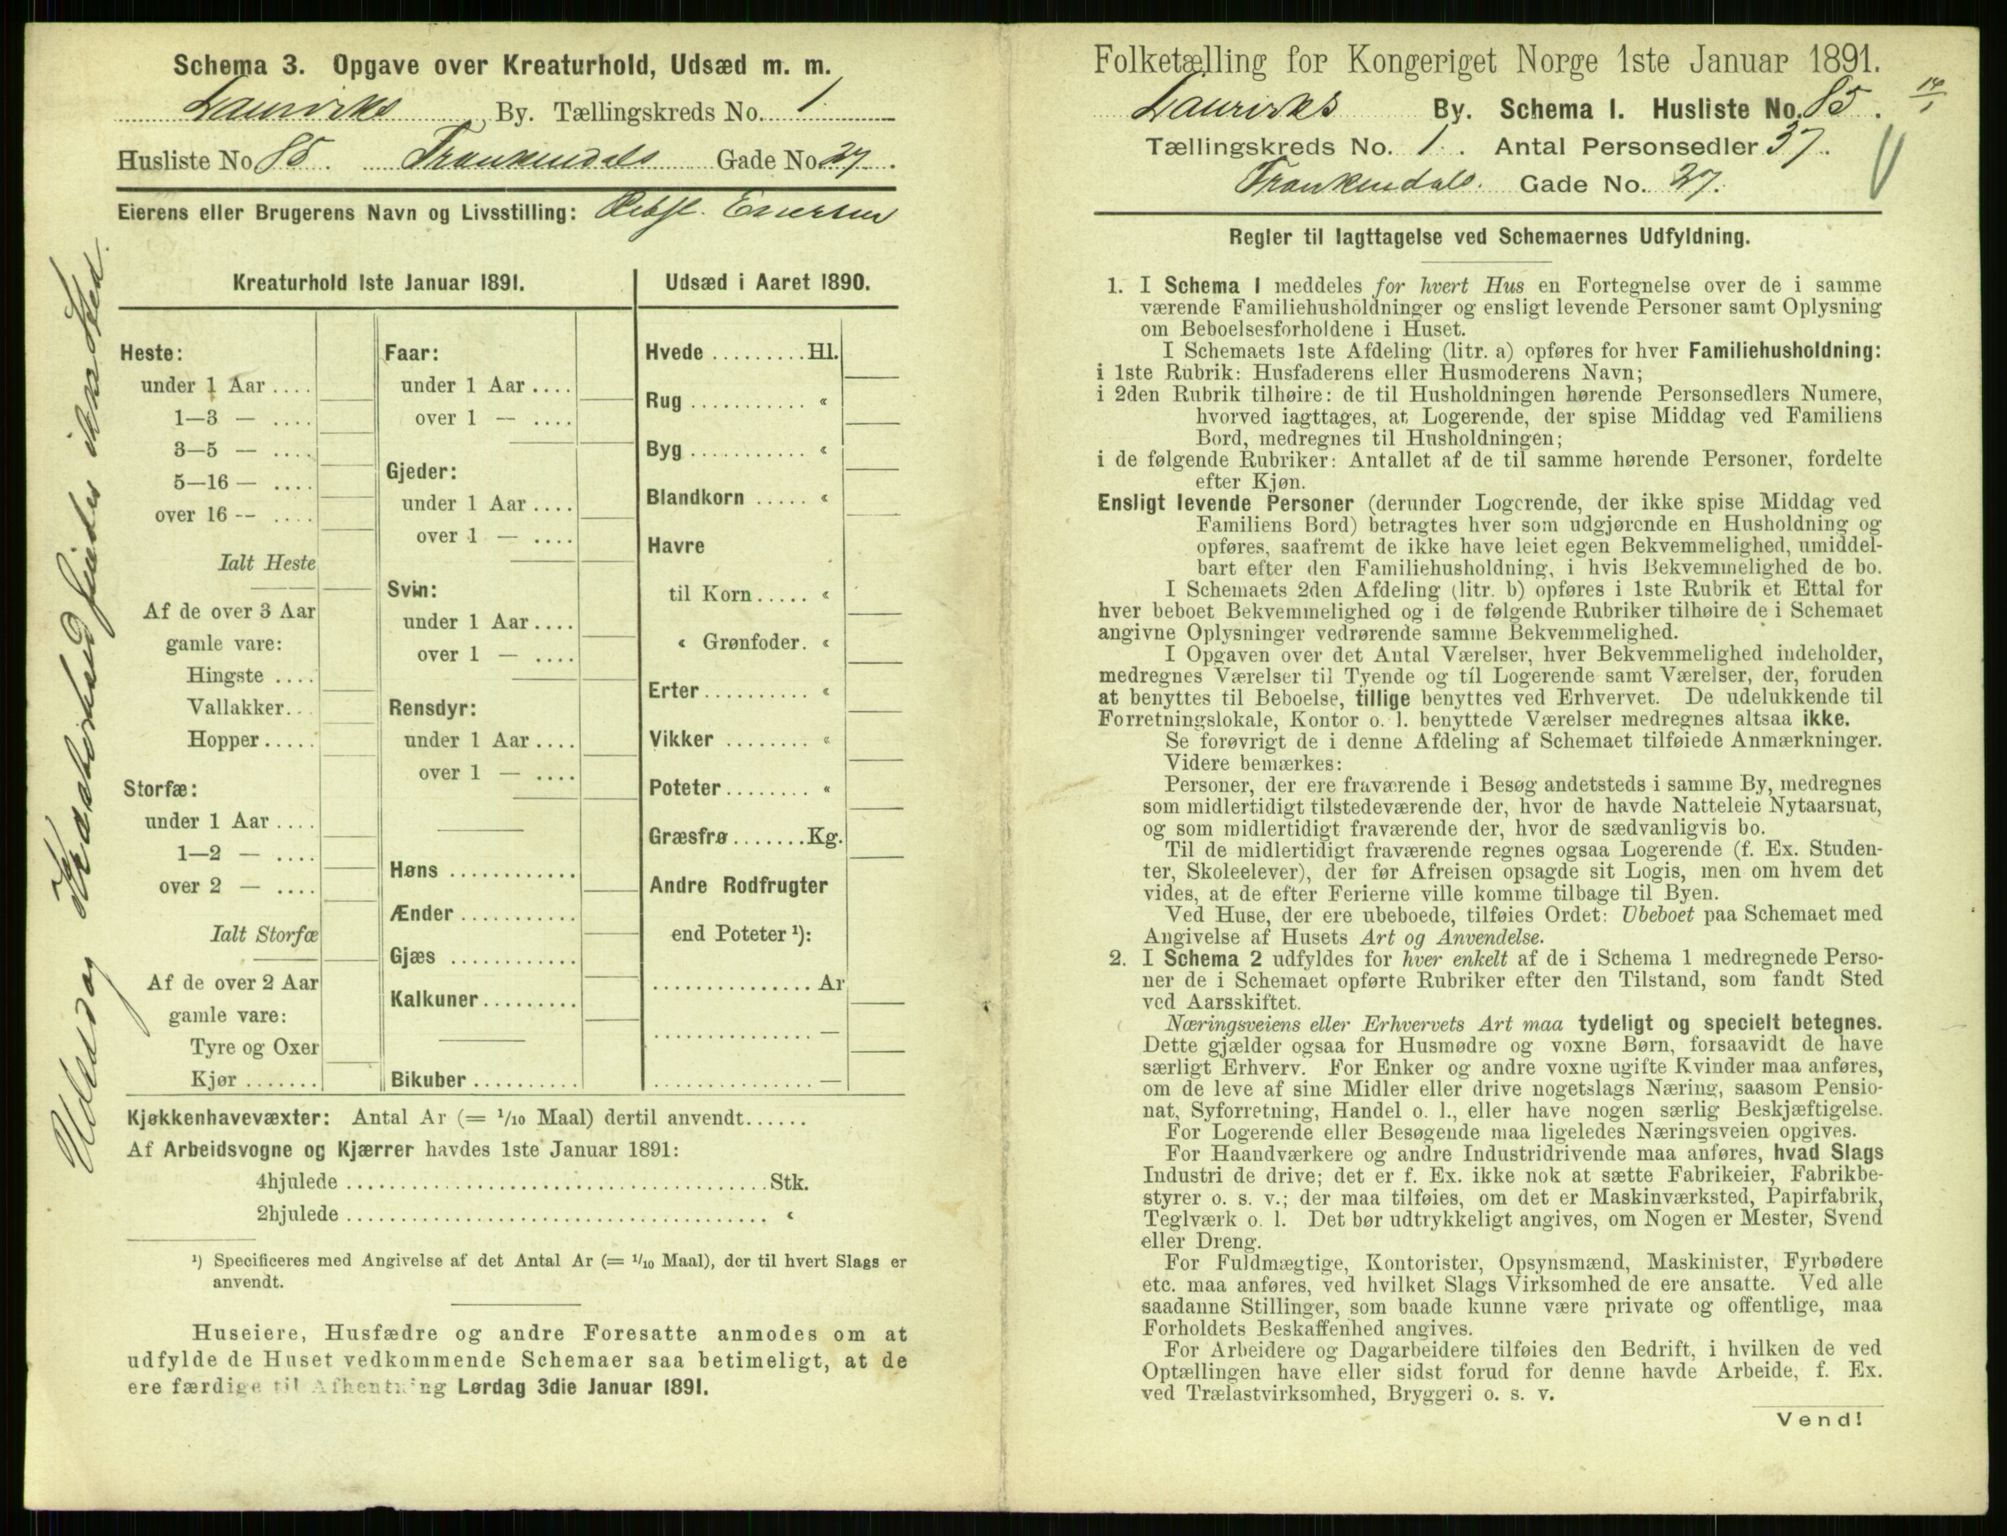 Schema 3. Opgave over Kreaturhold, Udsæd m. m.
Laurviks By. Tællingskreds No. 1
Husliste No 85. Frankendals Gade No. 27.
Eierens eller Brugerens Navn og Livsstilling:
Kreaturhold 1ste Januar 1891.
Heste:
under 1 Aar ....
1—3 — ....
3—5 — ....
5—16 — ....
over 16 -- ....
Ialt Heste
Af de over 3 Aar
gamle vare:
Hingste ....
Vallakker...
Hopper.....
Storfæ:
under 1 Aar ....
1—2 — ....
over 2 — ....
Ialt Storfæ
Af de over 2 Aar
gamle vare:
Tyre og Oxer
Kjør .......
Faar:
under 1 Aar ....
over 1 — ....
Gjeder:
under 1 Aar ....
over 1 — ....
Svin:
under 1 Aar ....
over 1 — ....
Rensdyr:
under 1 Aar ....
over 1 — ....
Høns ............
Ænder ...........
Gjæs ............
Kalkuner.........
Bikuber ..........
Udsæd i Aaret 1890.
Hvede .........Hl.
Rug ........... «
Byg ........... «
Blandkorn ..... «
Havre
til Korn..... «
« Grønfoder. «
Erter.......... «
Vikker ........ «
Poteter........ «
Græsfrø.......Kg.
Andre Rodfrugter
end Poteter ¹):
...............Ar
............... —
............... —
Kjøkkenhavevæxter: Antal Ar (= 1/10 Maal) dertil anvendt......
Af Arbeidsvogne og Kjærrer havdes 1ste Januar 1891:
4hjulede ........................................Stk.
2hjulede ........................................ «
¹) Specificeres med Angivelse af det Antal Ar (= 1/10 Maal), der til hvert Slags er
anvendt.
Huseiere, Husfædre og andre Foresatte anmodes om at
udfylde de Huset vedkommende Schemaer saa betimeligt, at de
ere færdige til Afhentning Lørdag 3die Januar 1891.
Udsæd og Kreaturhold findes ikke Sted.
Folketælling for Kongeriget Norge 1ste Januar 1891.
Laurviks By. Schema I. Husliste No. 85.
Tællingskreds No. 1. Antal Personsedler 37.
Frankendals. Gade No. 27.
Regler til Iagttagelse ved Schemaernes Udfyldning.
1. I Schema 1 meddeles for hvert Hus en Fortegnelse over de i samme
værende Familiehusholdninger og ensligt levende Personer samt Oplysning
om Beboelsesforholdene i Huset.
I Schemaets 1ste Afdeling (litr. a) opføres for hver Familiehusholdning:
i 1ste Rubrik: Husfaderens eller Husmoderens Navn;
i 2den Rubrik tilhøire: de til Husholdningen hørende Personsedlers Numere,
hvorved iagttages, at Logerende, der spise Middag ved Familiens
Bord, medregnes til Husholdningen;
i de følgende Rubriker: Antallet af de til samme hørende Personer, fordelte
efter Kjøn.
Ensligt levende Personer (derunder Logerende, der ikke spise Middag ved
Familiens Bord) betragtes hver som udgjørende en Husholdning og
opføres, saafremt de ikke have leiet egen Bekvemmelighed, umiddel-
bart efter den Familiehusholdning, i hvis Bekvemmelighed de bo.
I Schemaets 2den Afdeling (litr. b) opføres i 1ste Rubrik et Ettal for
hver beboet Bekvemmelighed og i de følgende Rubriker tilhøire de i Schemaet
angivne Oplysninger vedrørende samme Bekvemmelighed.
I Opgaven over det Antal Værelser, hver Bekvemmelighed indeholder,
medregnes Værelser til Tyende og til Logerende samt Værelser, der, foruden
at benyttes til Beboelse, tillige benyttes ved Erhvervet. De udelukkende til
Forretningslokale, Kontor o. l. benyttede Værelser medregnes altsaa ikke.
Se forøvrigt de i denne Afdeling af Schemaet tilføiede Anmærkninger.
Videre bemærkes:
Personer, der ere fraværende i Besøg andetsteds i samme By, medregnes
som midlertidigt tilstedeværende der, hvor de havde Natteleie Nytaarsnat,
og som midlertidigt fraværende der, hvor de sædvanligvis bo.
Til de midlertidigt fraværende regnes ogsaa Logerende (f. Ex. Studen-
ter, Skoleelever), der før Afreisen opsagde sit Logis, men om hvem det
vides, at de efter Ferierne ville komme tilbage til Byen.
Ved Huse, der ere ubeboede, tilføies Ordet: Ubeboet paa Schemaet med
Angivelse af Husets Art og Anvendelse.
2. I Schema 2 udfyldes for hver enkelt af de i Schema 1 medregnede Perso-
ner de i Schemaet opførte Rubriker efter den Tilstand, som fandt Sted
ved Aarsskiftet.
Næringsveiens eller Erhvervets Art maa tydeligt og specielt betegnes.
Dette gjælder ogsaa for Husmødre og voxne Børn, forsaavidt de have
særligt Erhverv. For Enker og andre voxne ugifte Kvinder maa anføres,
om de leve af sine Midler eller drive nogetslags Næring, saasom Pensio-
nat, Syforretning, Handel o. l., eller have nogen særlig Beskjæftigelse.
For Logerende eller Besøgende maa ligeledes Næringsveien opgives.
For Haandværkere og andre Industridrivende maa anføres, hvad Slags
Industri de drive; det er f. Ex. ikke nok at sætte Fabrikeier, Fabrikbe-
styrer o. s. v.; der maa tilføies, om det er Maskinværksted, Papirfabrik,
Teglværk o. l. Det bør udtrykkeligt angives, om Nogen er Mester, Svend
eller Dreng.
For Fuldmægtige, Kontorister, Opsynsmænd, Maskinister, Fyrbødere
etc. maa anføres, ved hvilket Slags Virksomhed de ere ansatte. Ved alle
saadanne Stillinger, som baade kunne være private og offentlige, maa
Forholdets Beskaffenhed angives.
For Arbeidere og Dagarbeidere tilføies den Bedrift, i hvilken de ved
Optællingen have eller sidst forud for denne havde Arbeide, f. Ex.
ved Trælastvirksomhed, Bryggeri o. s. v.
Vend!